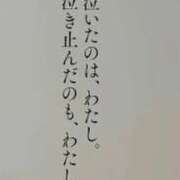 泣いたのは、わたし。
泣き止んだのも、わたし